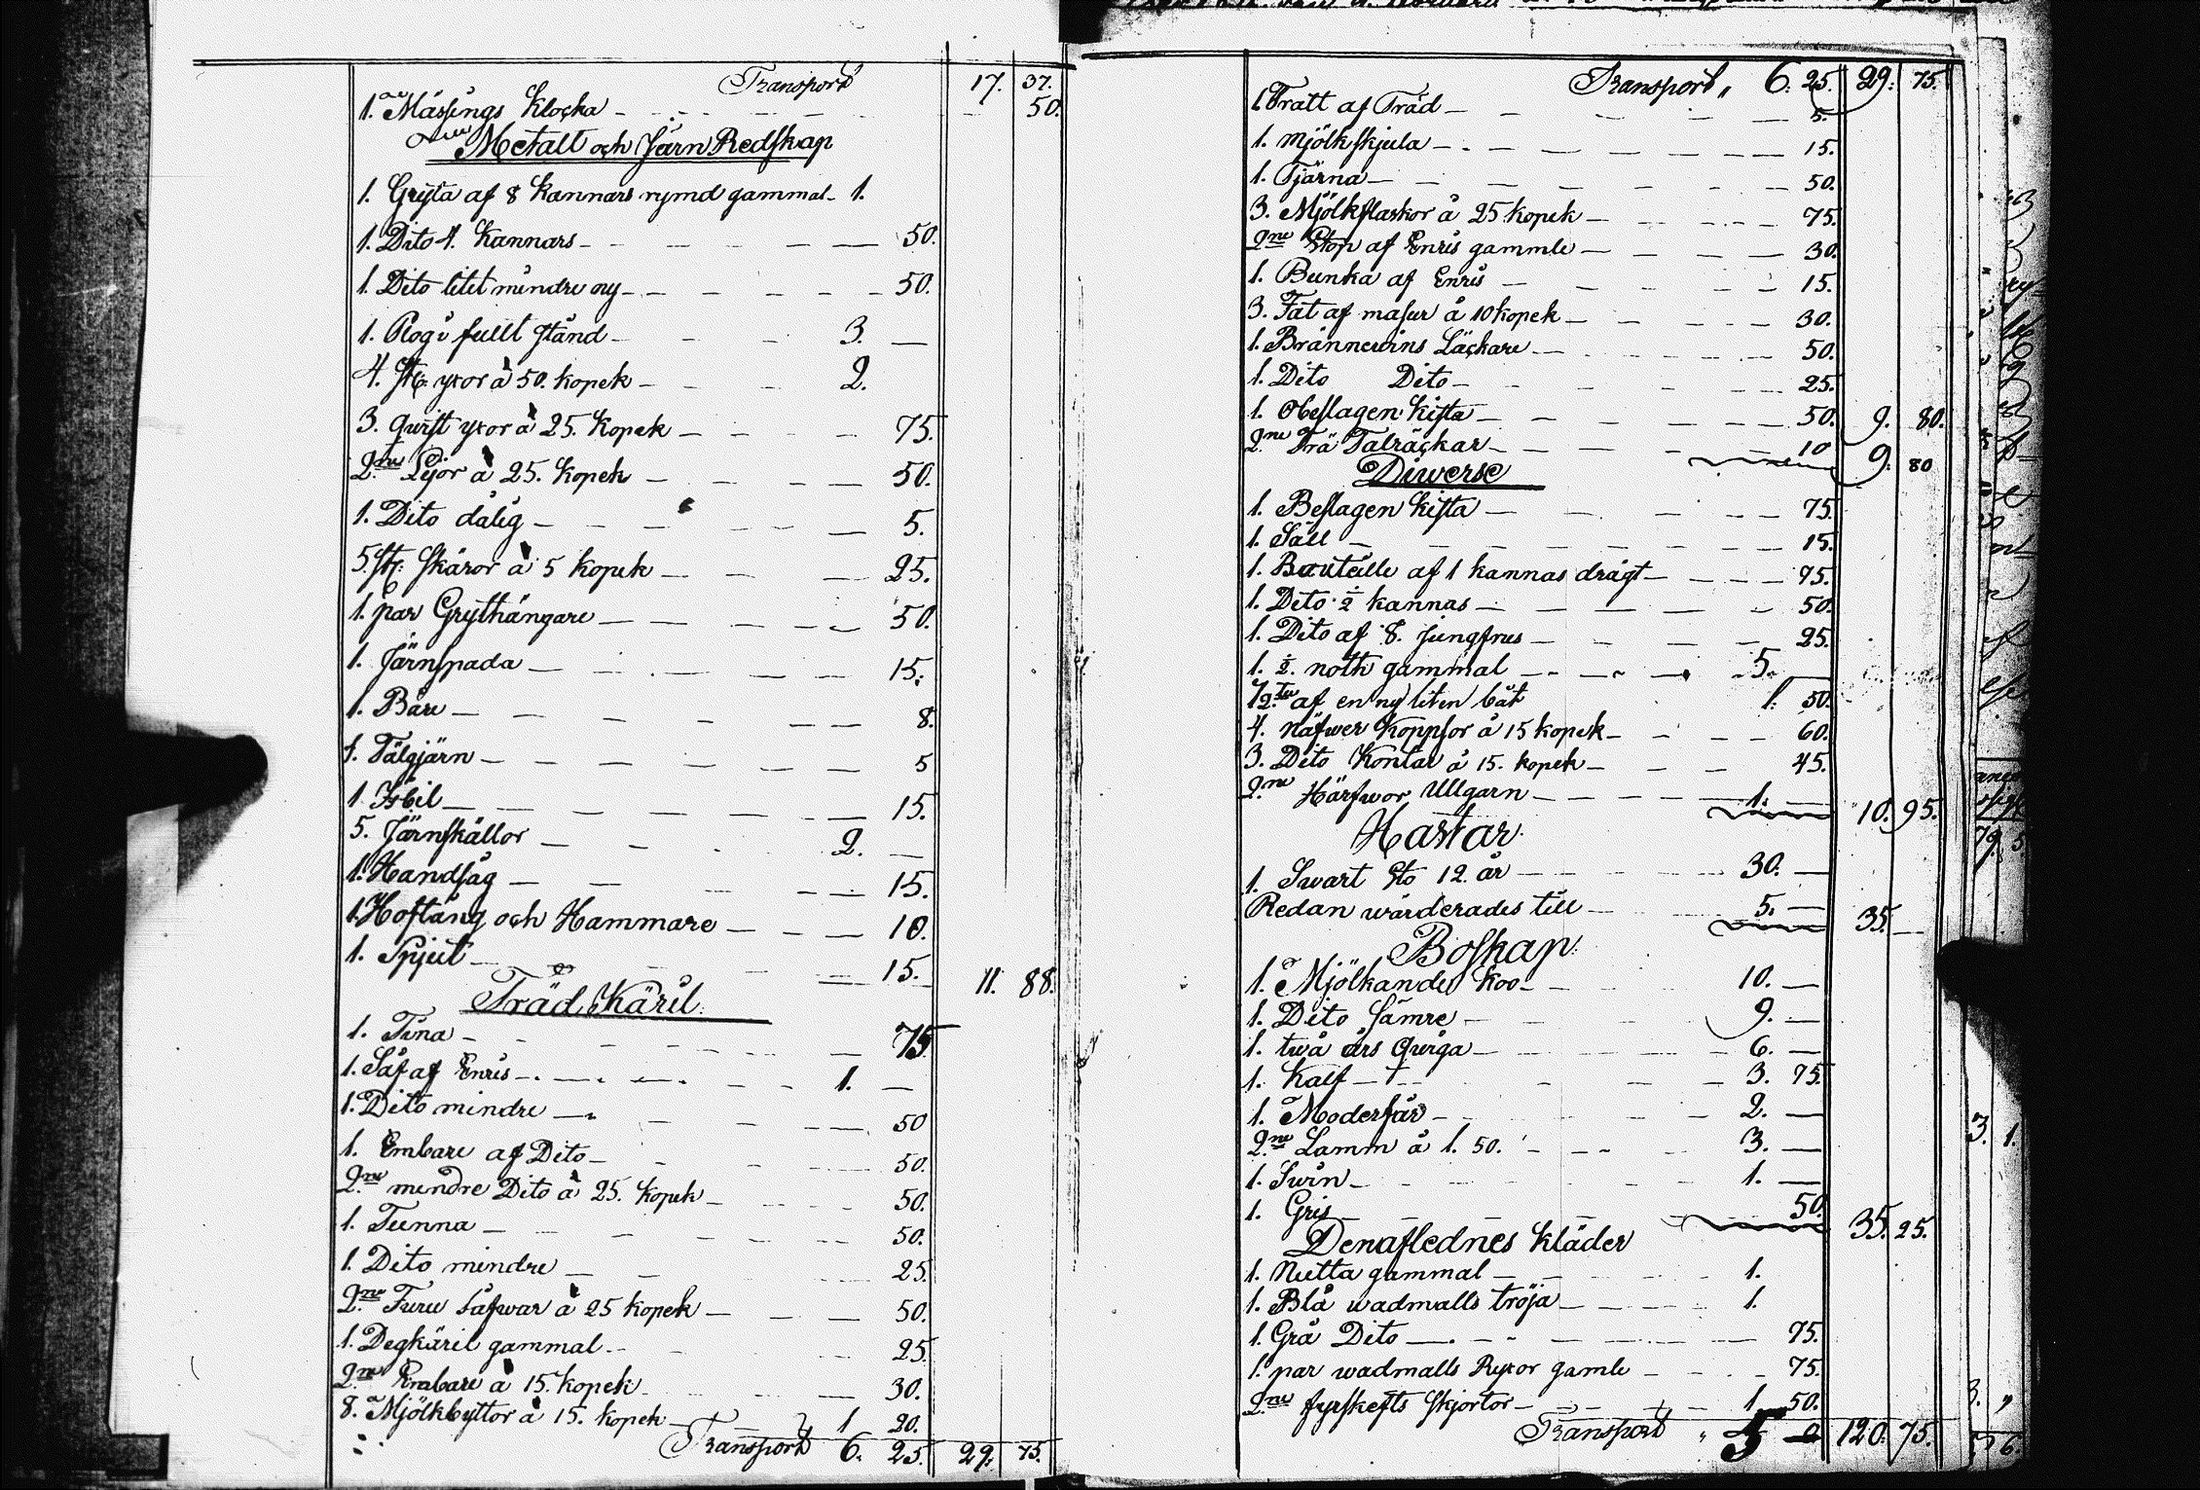 Transport 17. 37.
1. Mässings Klocka 50.
Metall och Järn Redskap
1. Gryta af 8 Kannars rymd gammal 1.
1. Dito 4. Kannars 50.
1. Dito litet mindre ny 50.
1. Plog i fullt stånd 3. —
4. st. yxor à 50. kopek 2.
3. quist yxor à 25. Kopek 75.
2ne Lijor à 25. Kopek 50.
1. Dito dålig 5.
5. st. skäror à 5 Kopek 25.
1. par Grythängare 50.
1. Järnspada 15.
1. Båre 8.
1. Täljjärn 5
1 Isbil 15.
5. Järnskällor 2. —
1. Handsåg 15.
1. Hoftång och Hammare 10.
1. Spjut 15. 11. 88.
Träd Käril.
1. Tina 75
1. Såf af Enris 1. —
1. Dito mindre 50
1. Embare af Dito 50.
2ne mindre Dito à 25. Kopek 50.
1. Tunna 50.
1. Dito mindre 25.
2ne Furu Såfwar à 25 Kopek 50.
1. Degkäril gammal 25.
2ne Embare à 15. Kopek 30.
8. Mjölkbyttor à 15. Kopek 1 20.
Transport 6. 25. 29. 75.
Transport 6. 25. 29. 75.
1. Tratt af Träd 5.
1. Mjölkskjula 15.
1. Tjärna 50.
3. Mjölkflaskor à 25 Kopek 75.
2ne Stop af Enris gammle 30.
1. Bunka af Enris 15.
3. Fat af masur à 10 Kopek 30.
1. Brännewins Läckare 50.
1. Dito Dito 25.
1. Obeslagen Kista 50. 9. 80.
2ne Trä Talräckar 10 9. 80
Diwerse
1. Beslagen Kista 75.
1. Såll 15.
1. Bouteille af 1 kannas drägt 75.
1. Dito ½ kannas 50.
1. Dito af 8. jungfrus 25.
1. ½. noth gammal 5. —
½ af en ny liten båt 1. 50.
4. näfwer Koppsor à 15 kopek 60.
3. Dito Kontar à 15. kopek 45.
2ne Härfwor Ullgarn 1. — 10. 95.
Hästar
1. Swart Sto 12. år 30. —
Redan wärderades till 5. — 35. —
Boskap.
1. Mjölkande Koo 10. —
1. Dito sämre 9. —
1. twå års Qwiga 6. —
1. Kalf 3. 75.
1. Moderfår 2. —
2ne Lamm à 1. 50. 3. —
1. Swin 1. —
1. Gris 50. 35. 25.
Den aflednes Kläder
1. Mutta gammal 1.
1. Blå wadmalls tröja 1.
1. Grå Dito 75.
1. par wadmalls Byxor gamle 75.
2ne fyrskefts Skjortor 1 50.
Transport 5 — 120. 75.